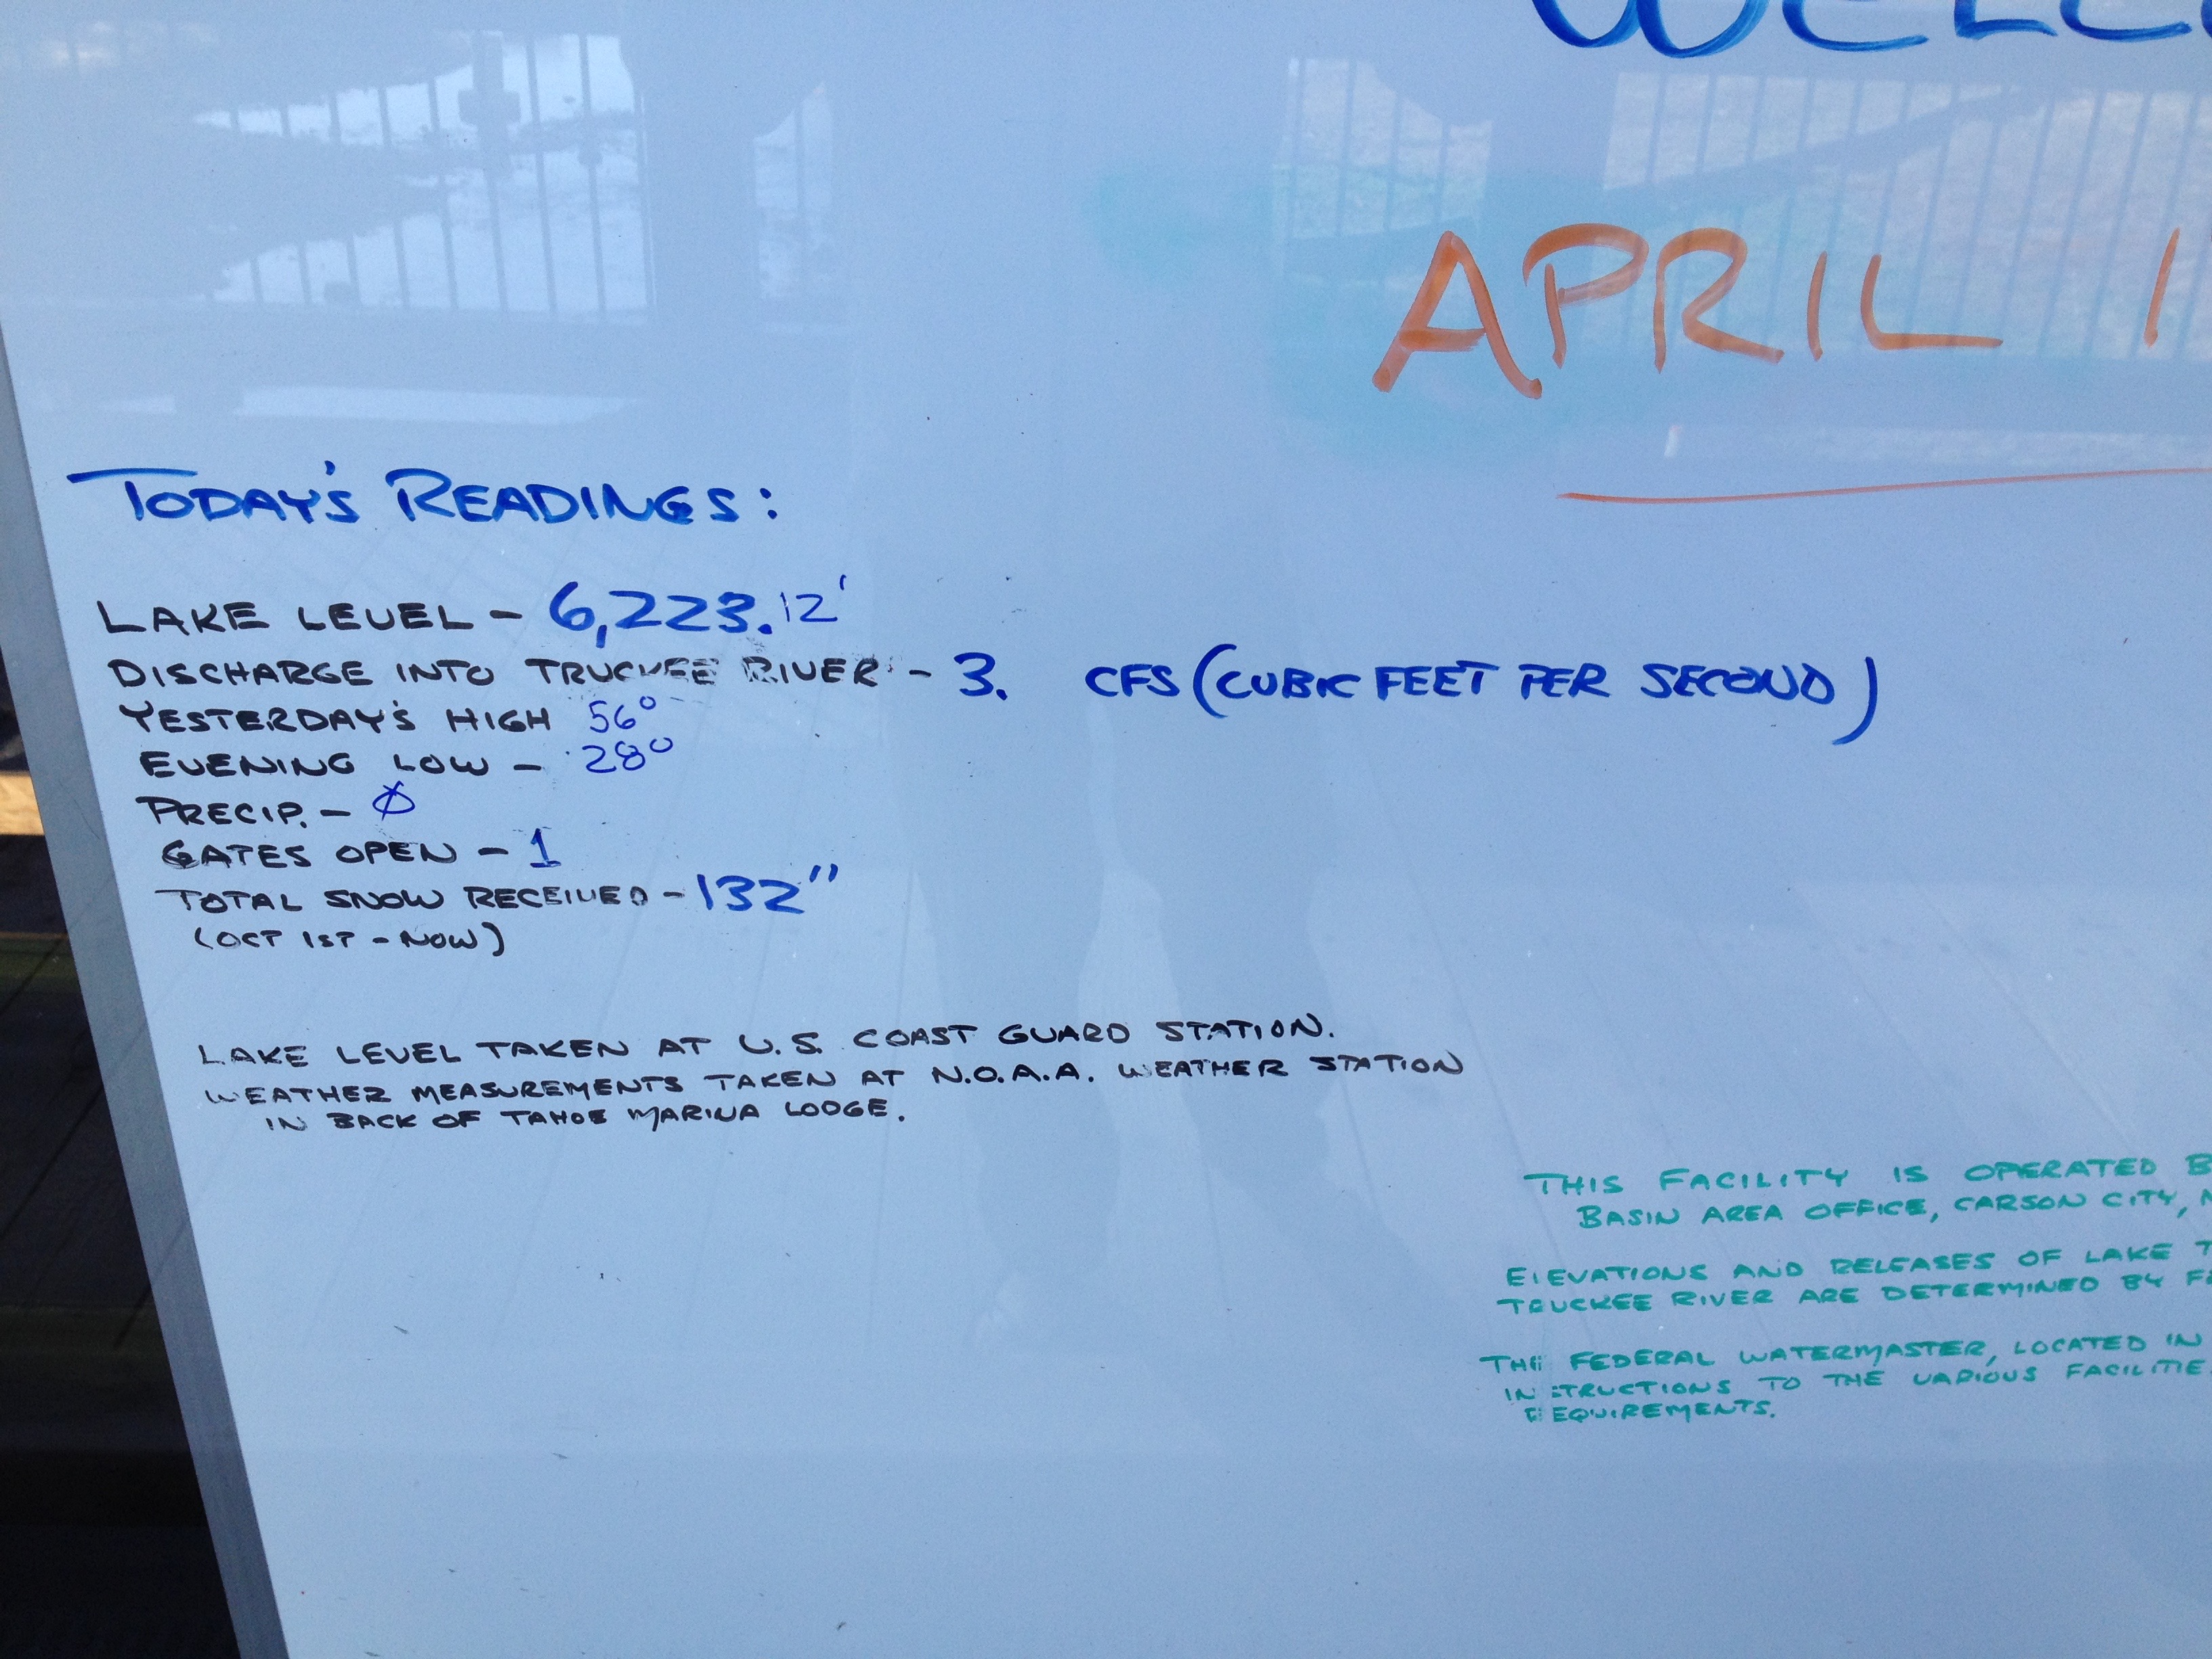 WELC
APRIL 1
TODAY'S READINGS:
LAKE LEVEL - 6,223.12'
DISCHARGE INTO TRUCKEE RIVER - 3. CFS (CUBIC FEET PER SECOND)
YESTERDAY'S HIGH 56°
EVENING LOW - 28°
PRECIP. - Ø
GATES OPEN - 1
TOTAL SNOW RECEIVED - 132"
(OCT 1ST - NOW)
LAKE LEVEL TAKEN AT U.S. COAST GUARD STATION.
WEATHER MEASUREMENTS TAKEN AT N.O.A.A. WEATHER STATION
IN BACK OF TAHOE MARINA LODGE.
THIS FACILITY IS OPERATED B
BASIN AREA OFFICE, CARSON CITY, N
ELEVATIONS AND RELEASES OF LAKE T
TRUCKEE RIVER ARE DETERMINED BY FE
THE FEDERAL WATERMASTER, LOCATED IN
INSTRUCTIONS TO THE VARIOUS FACILITIE
REQUIREMENTS.